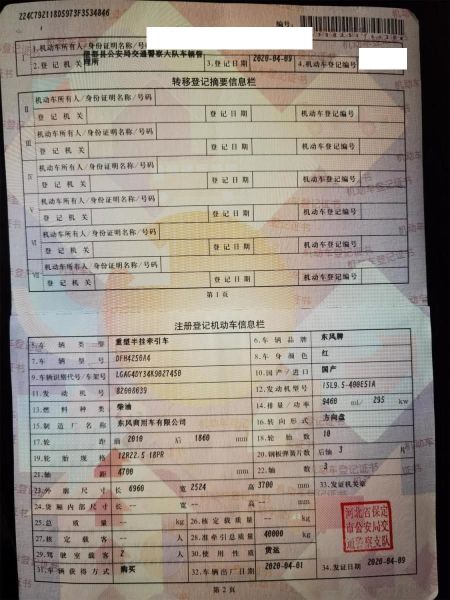 编号:
1.机动车所有人/身份证明名称/号码
2.登记机关 县公安局交通警察大队车辆管理所 3.登记日期 2020-04-09 4.机动车登记编号
转移登记摘要信息栏
II 机动车所有人/身份证明名称/号码
登记机关 登记日期 机动车登记编号
III 机动车所有人/身份证明名称/号码
登记机关 登记日期 机动车登记编号
IV 机动车所有人/身份证明名称/号码
登记机关 登记日期 机动车登记编号
V 机动车所有人/身份证明名称/号码
登记机关 登记日期 机动车登记编号
VI 机动车所有人/身份证明名称/号码
登记机关 登记日期 机动车登记编号
VII 机动车所有人/身份证明名称/号码
登记机关 登记日期 机动车登记编号
第1页
注册登记机动车信息栏
5.车辆类型 重型半挂牵引车 6.车辆品牌 东风牌
7.车辆型号 DFH4250A4 8.车身颜色 红
9.车辆识别代号/车架号 10.国产/进口 国产
11.发动机号 82008639 12.发动机型号 ISL9.5-400E51A
13.燃料种类 柴油 14.排量/功率 9460 ml/ 295 kw
15.制造厂名称 东风商用车有限公司 16.转向形式 方向盘
17.轮距 前 2010 后 1860 mm 18.轮胎数 10
19.轮胎规格 12R22.5 18PR 20.钢板弹簧片数 后轴 3 片
21.轴距 4700 mm 22.轴数 3
23.外廓尺寸 长 6960 宽 2524 高 3700 mm 33.发证机关章
24.货厢内部尺寸 长 -- 宽 -- 高 -- mm
25.总质量 kg 26.核定载质量 -- kg
27.核定载客 -- 人 28.准牵引总质量 40000 kg
29.驾驶室载客 2 人 30.使用性质 货运
31.车辆获得方式 购买 32.车辆出厂日期 2020-04-01 34.发证日期 2020-04-09
河北省保定
市公安局交
通警察支队
第2页